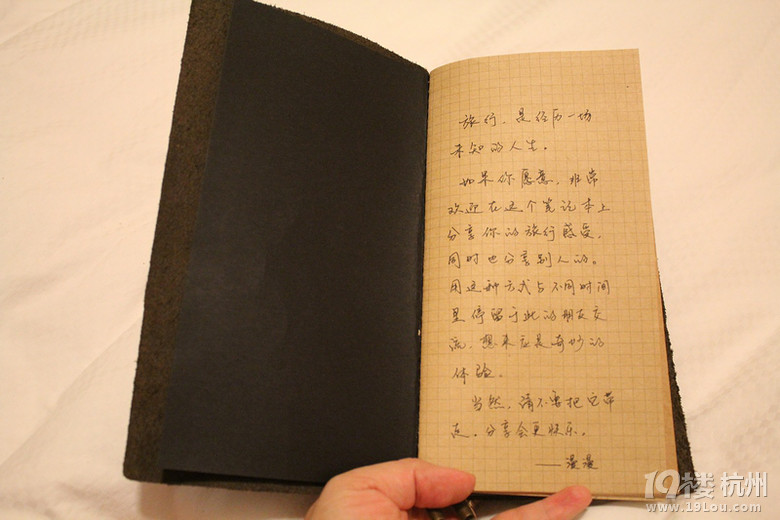 旅行，是经历一切
未知的人生。
如果你愿意，非常
欢迎在这个笔记本上
分享你的旅行感受，
同时也分享别人的。
用这种方式与不同时间
里停留于此的朋友交
流，想来应是奇妙的
体验。
当然，请不要把它带
走，分享会更快乐。
——漫漫
19楼杭州
www.19Lou.com